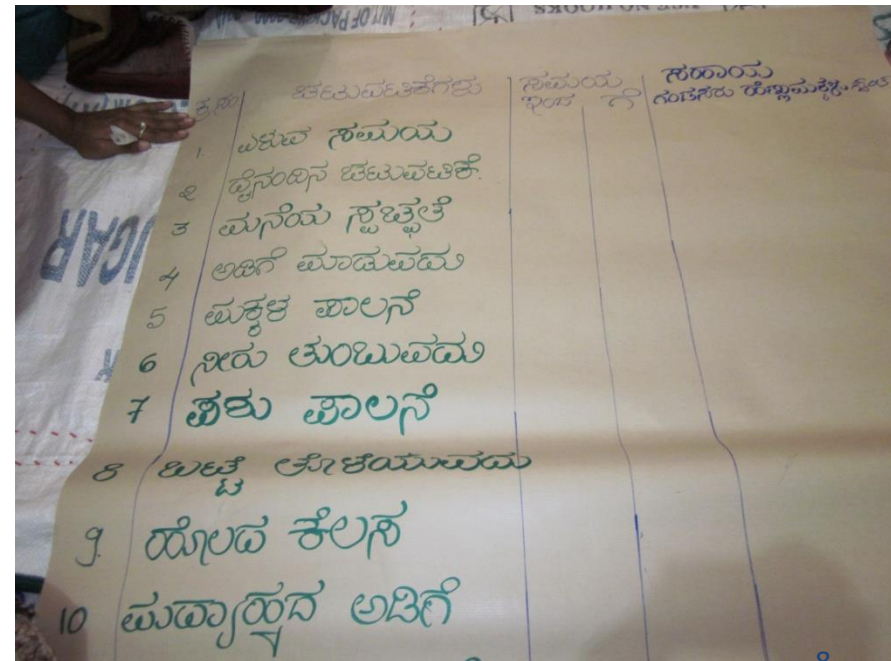 MIT OF PACK
ಕ್ರ.ಸಂ ಚಟುವಟಿಕೆಗಳು ಸಮಯ ಸಹಾಯ
ಇಂದ ಗೆ ಗಂಡಸರು ಹೆಣ್ಣುಮಕ್ಕಳು
1. ಏಳುವ ಸಮಯ
೨ ದೈನಂದಿನ ಚಟುವಟಿಕೆ.
3 ಮನೆಯ ಸ್ವಚ್ಛತೆ
4 ಅಡಿಗೆ ಮಾಡುವದು
5 ಮಕ್ಕಳ ಪಾಲನೆ
6 ನೀರು ತುಂಬುವದು
7 ಪಶು ಪಾಲನೆ
8 ಬಟ್ಟೆ ತೊಳೆಯುವದು
9. ಹೊಲದ ಕೆಲಸ
10 ಮದ್ಯಾಹ್ನದ ಅಡಿಗೆ